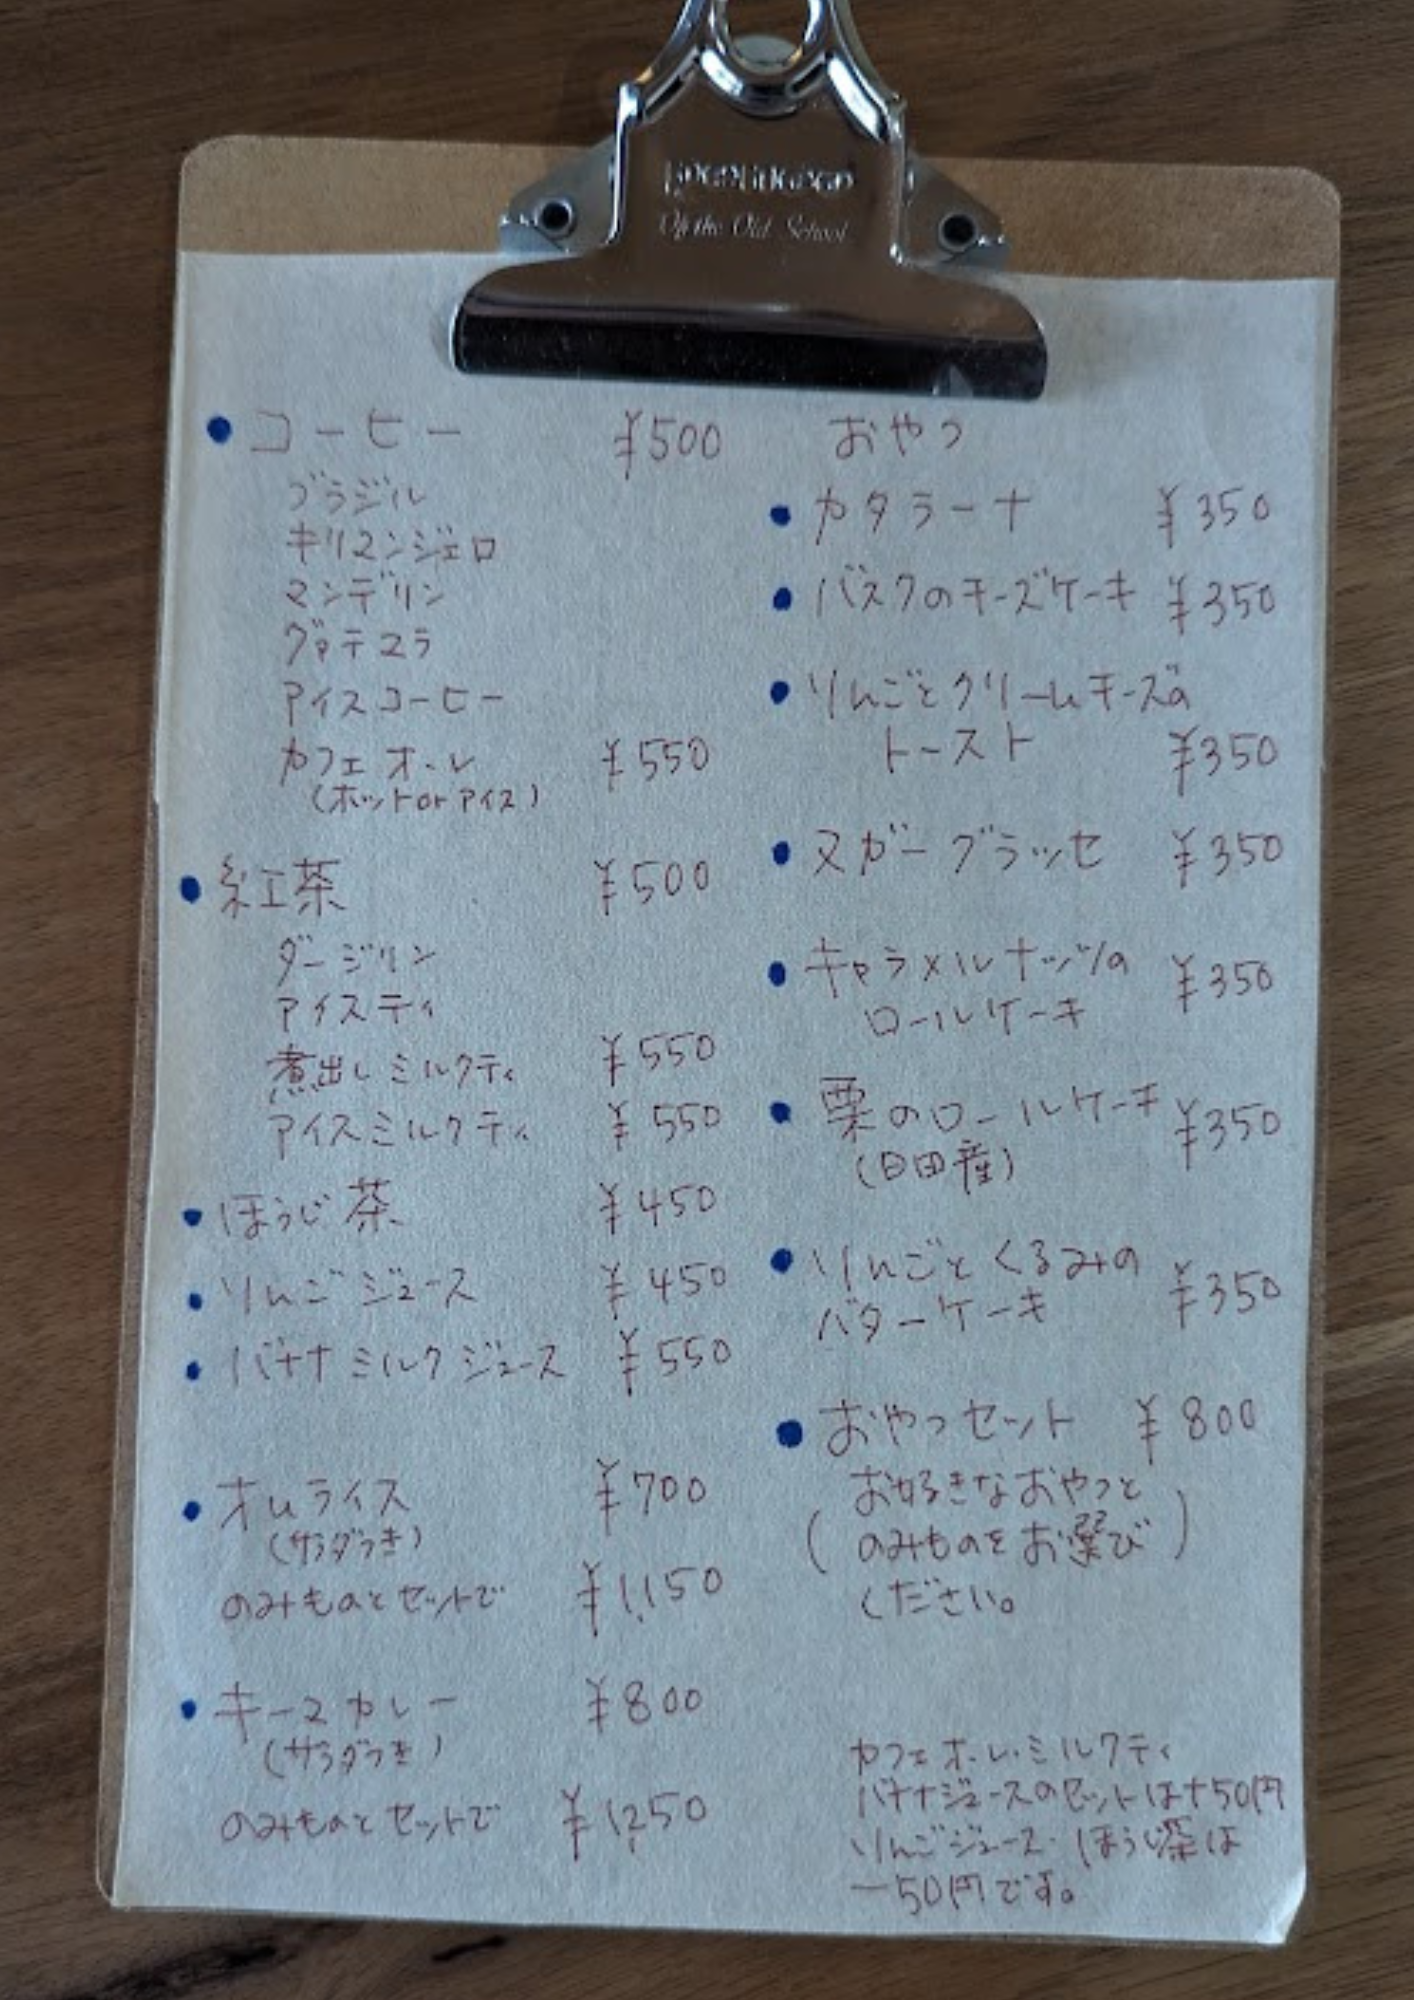 Of the Old School
コーヒー ¥500
ブラジル
キリマンジェロ
マンデリン
グァテマラ
アイスコーヒー
カフェオ・レ ¥550
(ホットorアイス)
紅茶 ¥500
ダージリン
アイスティ
煮出しミルクティ ¥550
アイスミルクティ ¥550
ほうじ茶 ¥450
りんごジュース ¥450
バナナミルクジュース ¥550
オムライス ¥700
(サラダつき)
のみものとセットで ¥1,150
キーマカレー ¥800
(サラダつき)
のみものとセットで ¥1,250
おやつ
カタラーナ ¥350
バスクのチーズケーキ ¥350
りんごとクリームチーズの
トースト ¥350
ヌガーグラッセ ¥350
キャラメルナッツの ¥350
ロールケーキ
栗のロールケーキ ¥350
(日田産)
りんごとくるみの
バターケーキ ¥350
おやつセット ¥800
(お好きなおやつと
のみものをお選び)
ください。
カフェオ・レ・ミルクティ
バナナジュースのセットは+50円
りんごジュース・ほうじ茶は
-50円です。